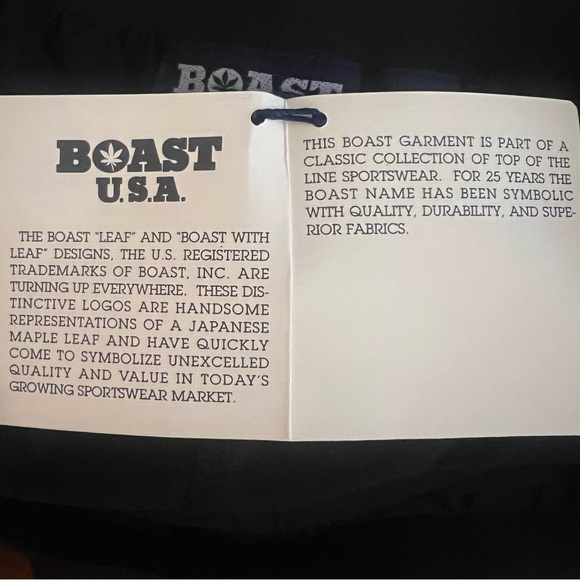 BOAST
BOAST
U.S.A.
THE BOAST "LEAF" AND "BOAST WITH
LEAF" DESIGNS, THE U.S. REGISTERED
TRADEMARKS OF BOAST, INC. ARE
TURNING UP EVERYWHERE. THESE DIS-
TINCTIVE LOGOS ARE HANDSOME
REPRESENTATIONS OF A JAPANESE
MAPLE LEAF AND HAVE QUICKLY
COME TO SYMBOLIZE UNEXCELLED
QUALITY AND VALUE IN TODAY'S
GROWING SPORTSWEAR MARKET.
THIS BOAST GARMENT IS PART OF A
CLASSIC COLLECTION OF TOP OF THE
LINE SPORTSWEAR. FOR 25 YEARS THE
BOAST NAME HAS BEEN SYMBOLIC
WITH QUALITY, DURABILITY, AND SUPE-
RIOR FABRICS.